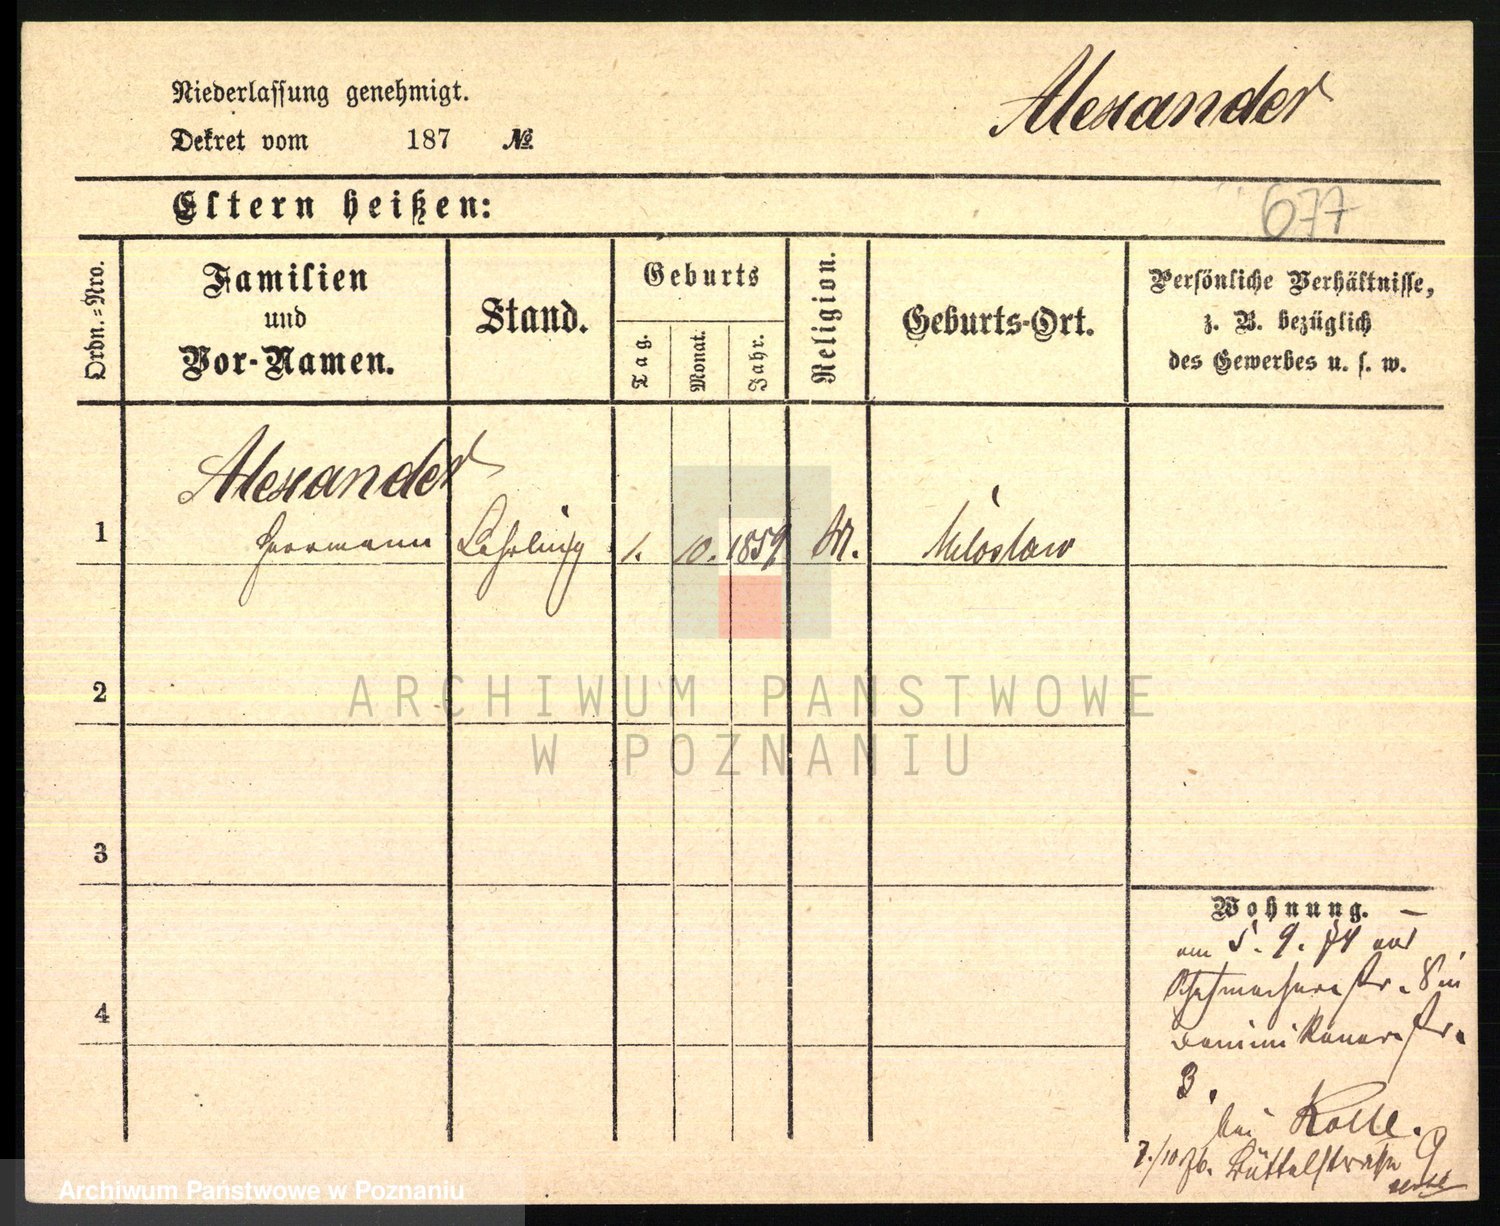 Niederlassung genehmigt.
Alexander
Dekret vom 187 №
Eltern heißen:
677
Ordn.-Nro.
Familien
und
Vor-Namen.
Stand.
Geburts
Tag.
Monat.
Jahr.
Religion.
Geburts-Ort.
Persönliche Verhältnisse,
z. B. bezüglich
des Gewerbes u. s. w.
Alexander
1 Herrmann Lehrling 1. 10. 1859 M. Miloslaw
2
ARCHIWUM PAŃSTWOWE
W POZNANIU
3
Wohnung. –
am 5. 9. 74 aus
str. 8 in
Dominikanerstr.
4
3.
bei Kolle.
7./10 76. Büttelstraße 9
Archiwum Państwowe w Poznaniu